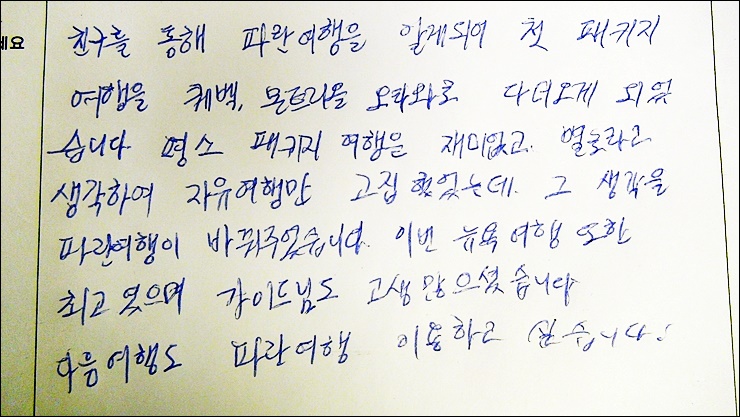 세요
친구를 통해 파란여행을 알게되어 첫 패키지
여행을 퀘벡, 몬트리올 오타와로 다녀오게 되었
습니다 평소 패키지 여행은 재미없고 별로라고
생각하여 자유여행만 고집했었는데 그 생각을
파란여행이 바꿔주었습니다. 이번 뉴욕여행 또한
최고였으며 가이드님도 고생많으셨습니다
다음여행도 파란여행 이용하고 싶습니다!